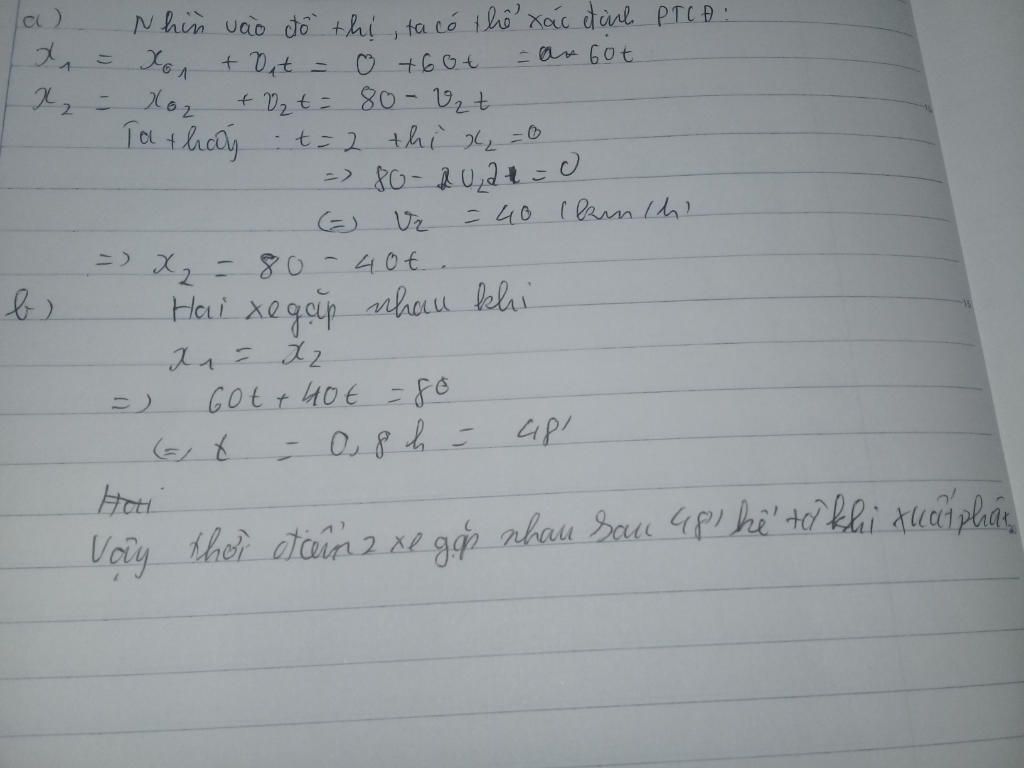 a) Nhìn vào đồ thị, ta có thể xác định PTCĐ:
x₁ = x₀₁ + v₁t = 0 + 60t = 60t
x₂ = x₀₂ + v₂t = 80 - v₂t
Ta thấy : t = 2 thì x₂ = 0
=> 80 - v₂2 = 0
(=) v₂ = 40 (km/h)
=> x₂ = 80 - 40t.
b) Hai xe gặp nhau khi
x₁ = x₂
=> 60t + 40t = 80
(=) t = 0,8h = 48'
Hai
Vậy thời điểm 2 xe gặp nhau sau 48' kể từ khi xuất phát.